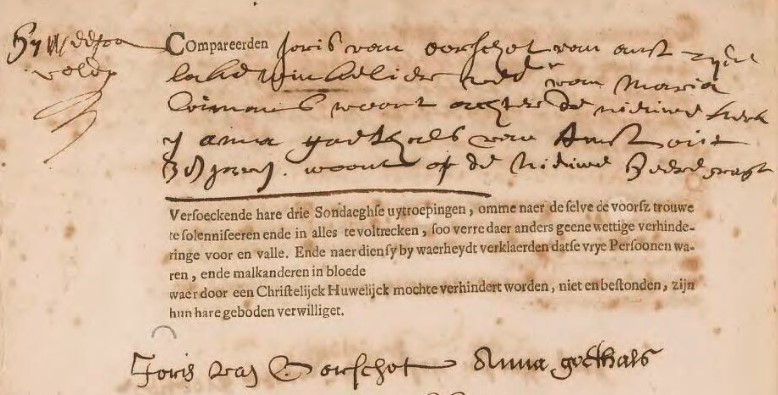 Compareerden Joris van oorschot van amst
wed.r van Maria
woont achter de nieuwe kerk
anna godthals van Amst out
woont op de Nieuwe
Versoeckende hare drie Sondaeghse uytroepingen, omme naer de selve de voorsz trouwe
te solenniseeren ende in alles te voltrecken, soo verre daer anders geene wettige verhinde-
ringe voor en valle. Ende naer dien sy by waerheydt verklaerden datse vrye Persoonen wa-
ren, ende malkanderen in bloede
waer door een Christelijck Huwelijck mochte verhindert worden, niet en bestonden, zijn
hun hare geboden verwilliget.
Joris van Oorschot Anna gotthals